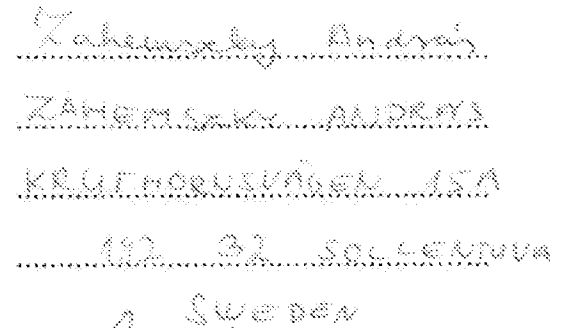 Zahemszky András
ZAHEMSZKY ANDRÁS
KRUTHORNSVÄGEN 15A
192 32 SOLLENTUNA
SWEDEN